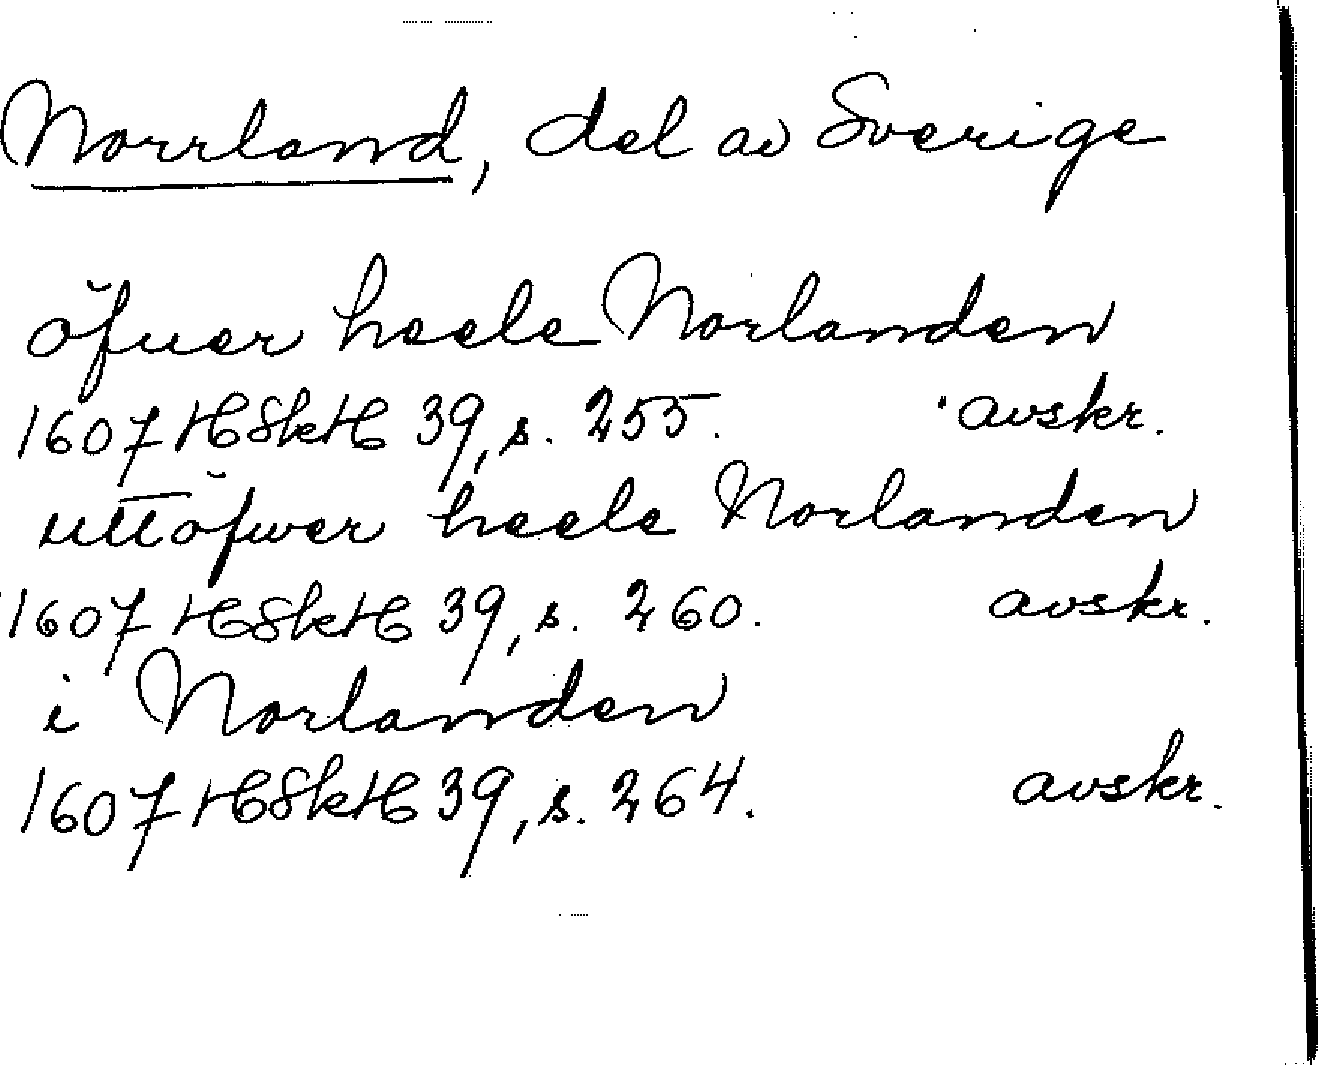 Norrland, del av Sverige
öfuer heele Norlanden
1607 HSkH 39, s. 255. avskr.
uttöfwer heele Norlanden
1607 HSkH 39, s. 260. avskr.
i Norlanden
1607 HSkH 39, s. 264. avskr.